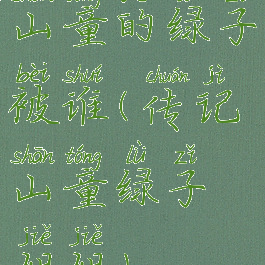 山童的绿子
bèi shuí chuán jì
被谁(传记
shān tóng lǜ zǐ
山童绿子
jiě jiě